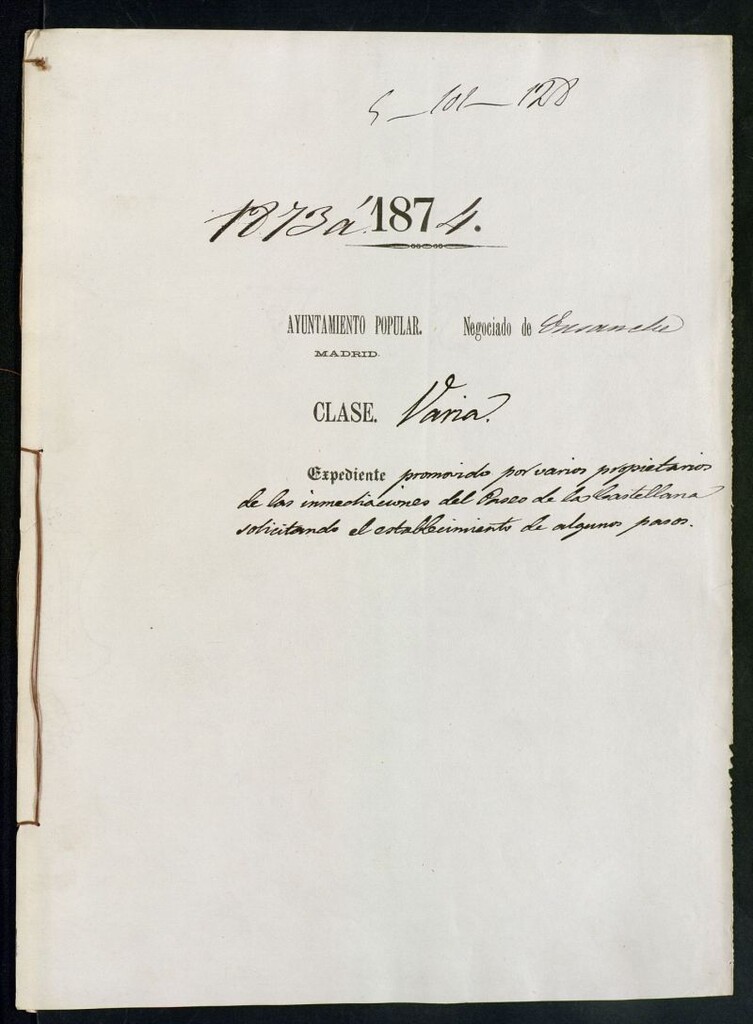 5-101-128
1873 á 1874.
AYUNTAMIENTO POPULAR. Negociado de Ensanche
MADRID.
CLASE. Varia.
Expediente promovido por varios propietarios
de las inmediaciones del Paseo de la Castellana
solicitando el establecimiento de algunos pasos.